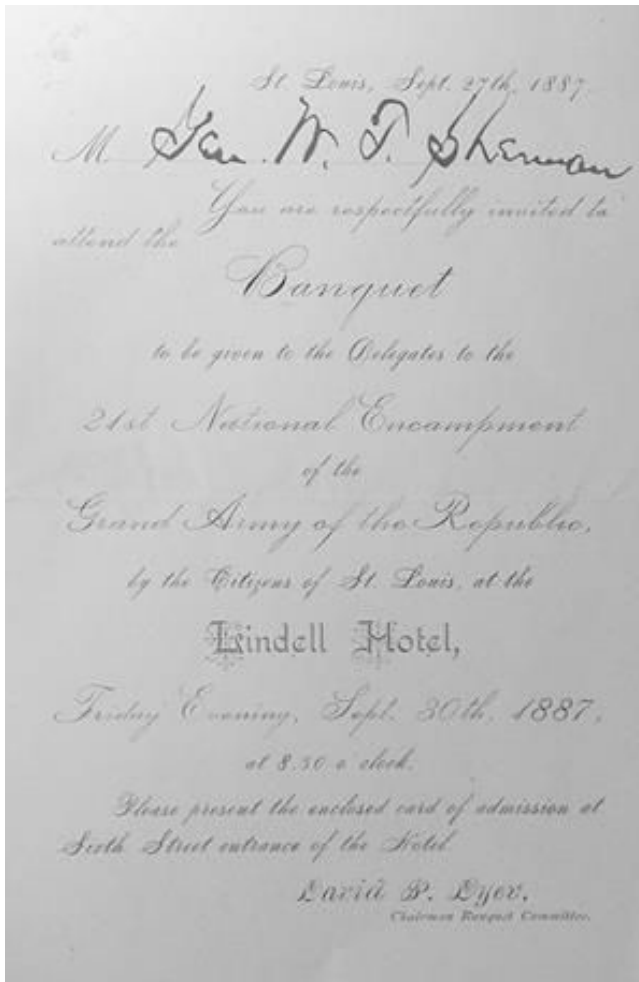 St. Louis, Sept. 27th, 1887.
M Gen. W. T. Sherman
You are respectfully invited to
attend the
Banquet
to be given to the Delegates to the
21st National Encampment
of the
Grand Army of the Republic,
by the Citizens of St. Louis, at the
Lindell Hotel,
Friday Evening, Sept. 30th, 1887,
at 8.30 o'clock.
Please present the enclosed card of admission at
Sixth Street entrance of the Hotel.
David P. Dyer,
Chairman Banquet Committee.